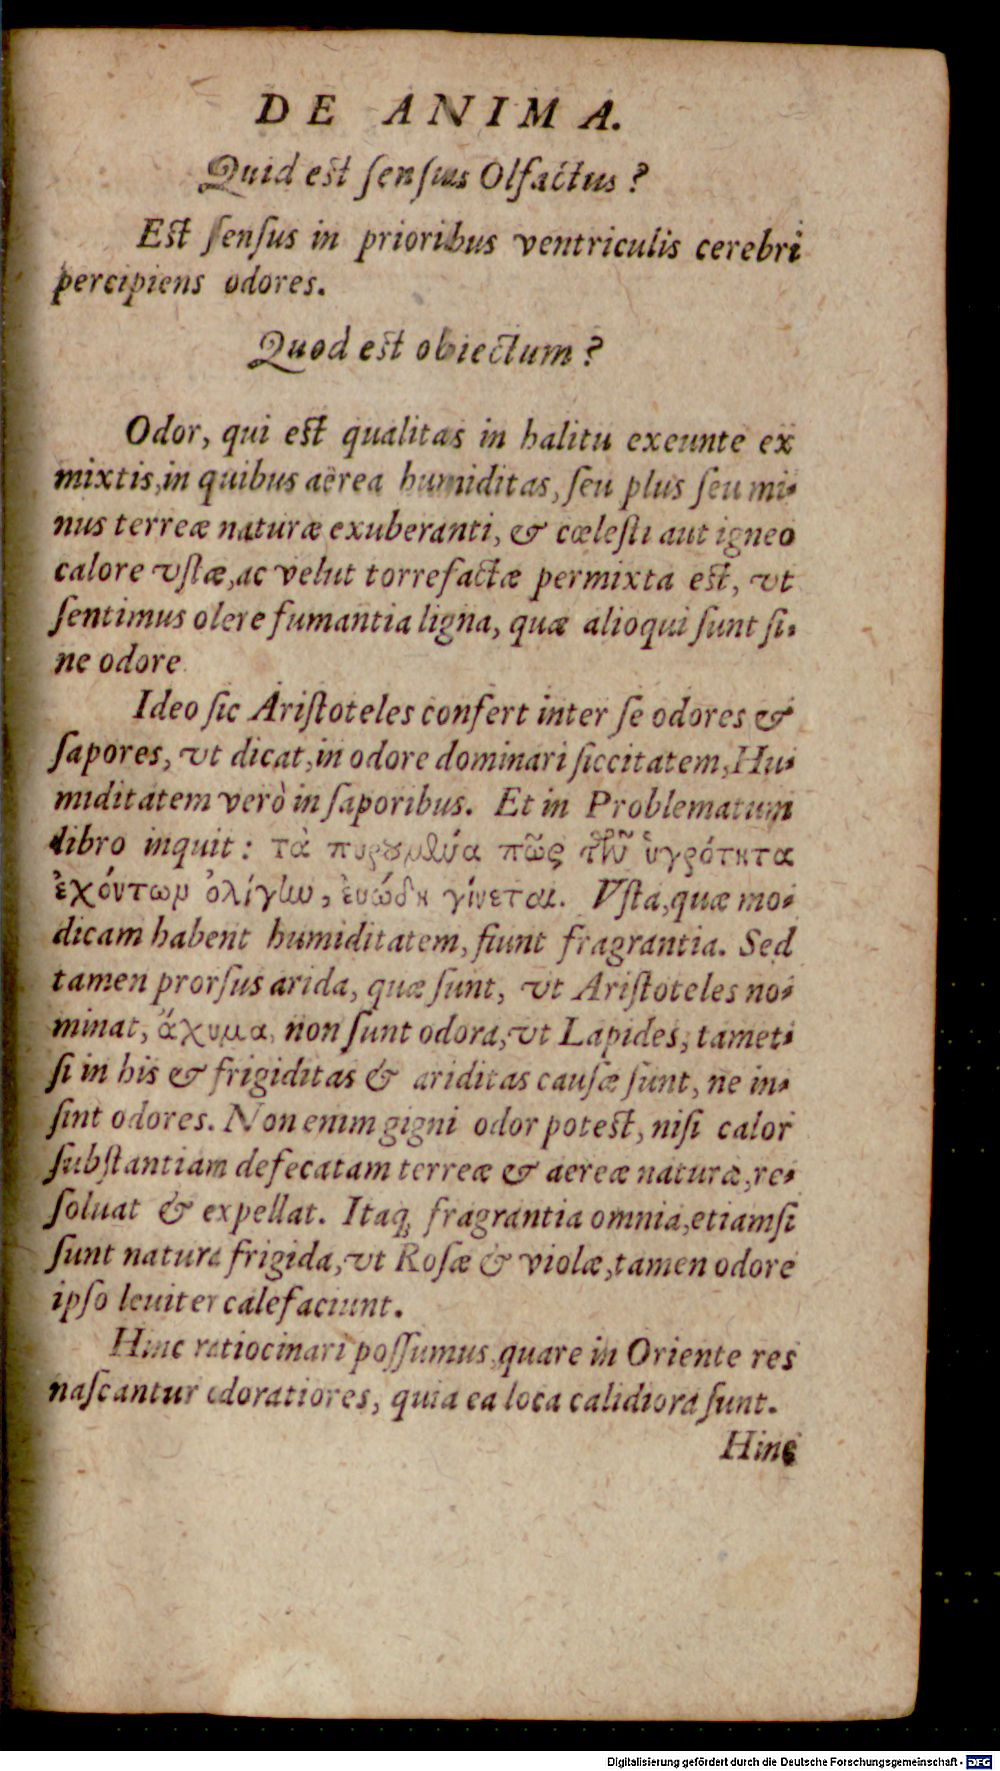 DE ANIMA.
Quid est sensus Olfactus?
Est sensus in prioribus ventriculis cerebri
percipiens odores.
Quod est obiectum?
Odor, qui est qualitas in halitu exeunte ex
mixtis, in quibus aërea humiditas, seu plus seu mi-
nus terreæ naturæ exuberanti, & cœlesti aut igneo
calore vstæ, ac velut torrefactæ permixta est, vt
sentimus olere fumantia ligna, quæ alioqui sunt si-
ne odore
Ideo sic Aristoteles confert inter se odores &
sapores, vt dicat, in odore dominari siccitatem, Hu-
miditatem verò in saporibus. Et in Problematum
libro inquit: τὰ πυρούμενα πῶς τὴν ὑγρότητα
ἐχόντων ὀλίγην, ἐυώδη γίνεται. Vsta, quæ mo-
dicam habent humiditatem, fiunt fragrantia. Sed
tamen prorsus arida, quæ sunt, vt Aristoteles no-
minat, ἄχυμα, non sunt odora, vt Lapides, tamet-
si in his & frigiditas & ariditas causæ sunt, ne in-
sint odores. Non enim gigni odor potest, nisi calor
substantiam defecatam terreæ & aereæ naturæ, re-
soluat & expellat. Itaq; fragrantia omnia, etiamsi
sunt natura frigida, vt Rosæ & violæ, tamen odore
ipso leuiter calefaciunt.
Hinc ratiocinari possumus, quare in Oriente res
nascantur odoratiores, quia ea loca calidiora sunt.
Hinc
Digitalisierung gefördert durch die Deutsche Forschungsgemeinschaft - DFG